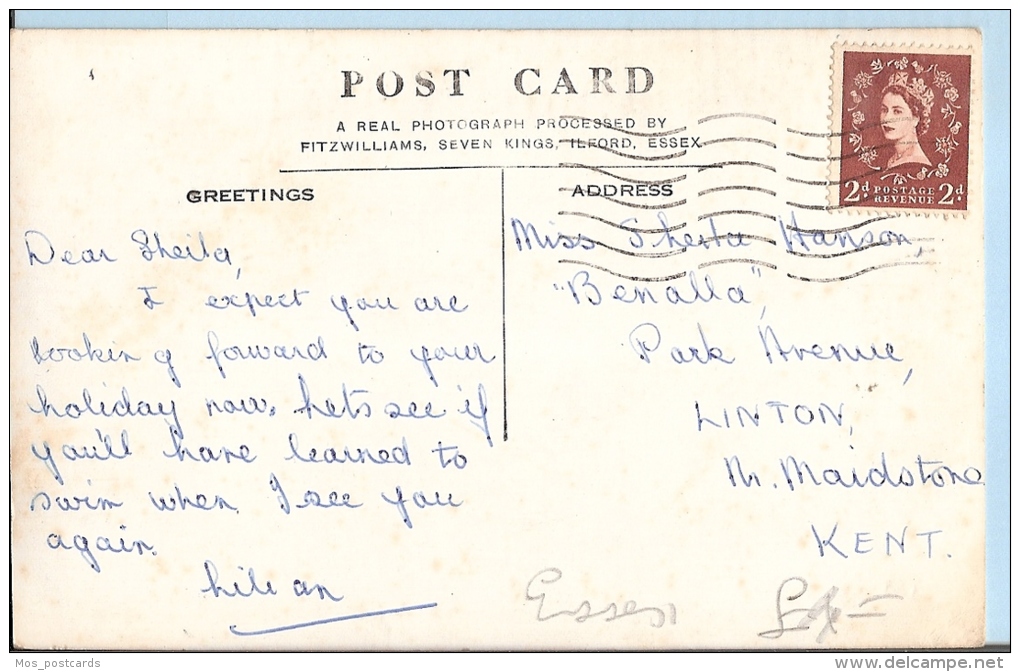 POST CARD
A REAL PHOTOGRAPH PROCESSED BY
FITZWILLIAMS, SEVEN KINGS, ILFORD, ESSEX
GREETINGS
Dear Sheila,
I expect you are
looking forward to your
holiday now. Lets see if
you'll have learned to
swim when I see you
again.
Lilian
ADDRESS
Miss Sheila Hanson,
"Benalla",
Park Avenue,
LINTON,
Nr. Maidstone
KENT.
2d POSTAGE 2d
REVENUE
Essex
Mos_postcards
delcampe.net